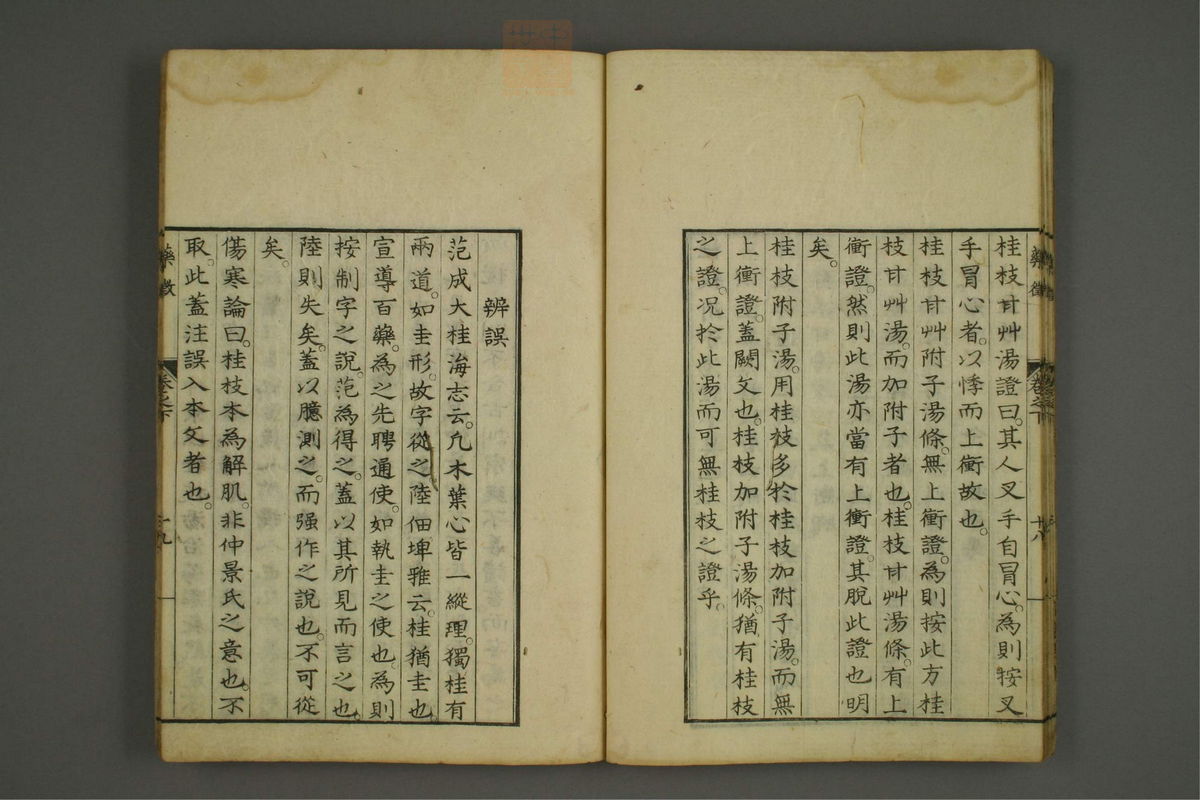 桂枝甘艸湯證曰。其人叉手自冒心。為則按叉
手冒心者。以悸而上衝故也。
桂枝甘艸附子湯條。無上衝證。為則按此方桂
枝甘艸湯。而加附子者也。桂枝甘艸湯條。有上
衝證。然則此湯亦當有上衝證。其脫此證也明
矣。
桂枝附子湯。用桂枝多於桂枝加附子湯。而無
上衝證。蓋闕文也。桂枝加附子湯條。猶有桂枝
之證。況於此湯而可無桂枝之證乎。
辨誤
范成大桂海志云。凢木葉心皆一縱理。獨桂有
兩道。如圭形。故字從之。陸佃埤雅云。桂猶圭也。
宣導百藥。為之先聘通使。如執圭之使也。為則
按制字之說。范為得之。蓋以其所見而言之也。
陸則失矣。蓋以臆測之。而强作之說也。不可從
矣。
傷寒論曰。桂枝本為解肌。非仲景氏之意也。不
取。此蓋注誤入本文者也。
藥徵
卷之下
十九